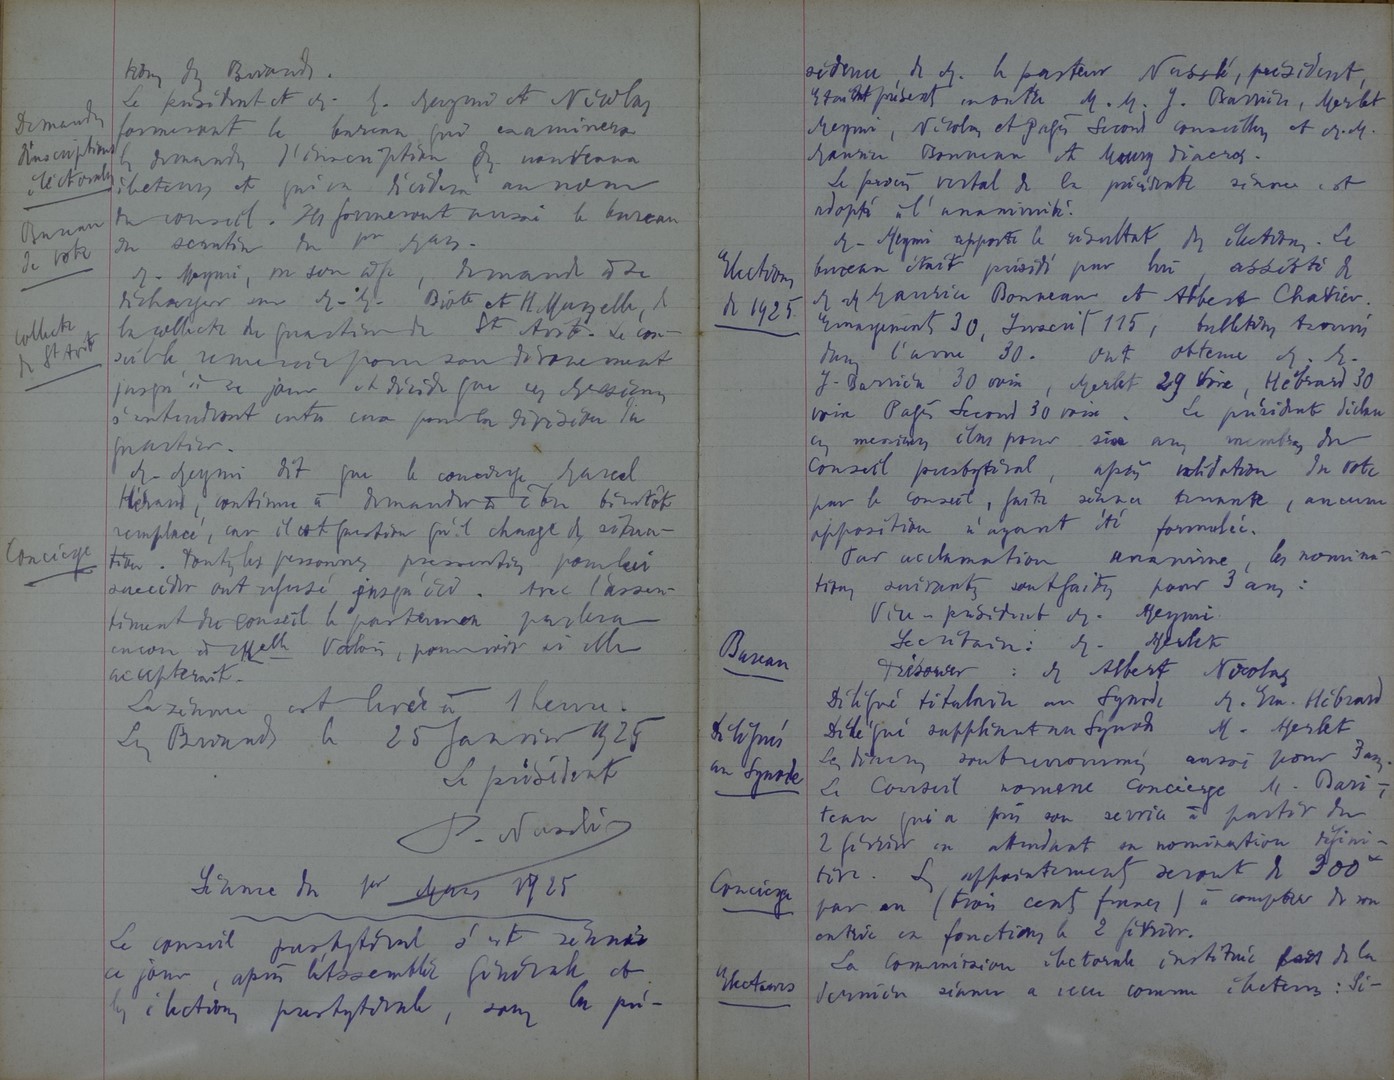 tion des Briands.
Le président et M. M. Meymi et Nicolas
Demandes
d'inscriptions
électorales
formeront le bureau qui examinera
les demandes d'inscription de nouveaux
électeurs et qui en décidera au nom
du conseil. Ils formeront aussi le bureau
Bureau
de vote
du scrutin du 1er Mars.
M. Meymi, vu son âge, demande à se
décharger sur M. M. Biote et H. Mazelle, de
collecte
de St Avit
la collecte du quartier de St Avit. Le con-
seil le remercie pour son dévouement
jusqu'à ce jour et décide que ces Messieurs
s'entendront entre eux pour la division du
quartier.
M. Meymi dit que le concierge Marcel
Hérard, continue à demander à être bientôt
remplacé, car il est question qu'il change de situa-
Concierge
tion. Toutes les personnes pressenties pour lui
succéder ont refusé jusqu'ici. Avec l'assen-
timent du conseil le pasteur parlera
encore à Melle Valois, pour voir si elle
accepterait.
La séance est levée à 1 heure.
Les Briands le 25 Janvier 1925
Le président
Séance du 1er Mars 1925
Le conseil presbytéral s'est réuni
ce jour, après l'Assemblée Générale et
les élections presbytérales, sous la pré-
sidence de M. le pasteur président,
étaient présents M. M. J. Barrière, Merlet
Meymi, Nicolas et Pagès Second conseillers et M. M.
Maurice Bonneau et diacres.
Le procès verbal de la précédente séance est
adopté à l'unanimité.
M. Meymi apporte le résultat des élections. Le
Elections
de 1925
bureau était présidé par lui, assisté de
M M Maurice Bonneau et Albert Chatier.
Emargements 30, Inscrits 115, bulletins trouvés
dans l'urne 30. Ont obtenu M. M.
J. Barrière 30 voix, Merlet 29 voix, Hébrard 30
voix Pagès Second 30 voix. Le président déclare
ces messieurs élus pour six ans membres du
Conseil presbytéral, après validation du vote
par le conseil, faite séance tenante, aucune
opposition n'ayant été formulée.
Par acclamation unanime, les nomina-
tions suivantes sont faites pour 3 ans :
Vice-président M. Meymi
Bureau
Secrétaire : M. Merlet
Trésorier : M Albert Nicolas
Délégué titulaire au Synode M. Em. Hébrard
Délégués
au Synode
Délégué suppléant au Synode M. Merlet
Les diacres sont renommés aussi pour 3 ans.
Le Conseil nomme Concierge M. Bari-
teau qui a pris son service à partir du
2 février en attendant sa nomination défini-
Concierge
tive. Les appointements seront de 300
par an (trois cents francs) à compter de son
entrée en fonctions le 2 février.
La Commission électorale instituée de la
Electeurs
dernière séance a reçu comme électeurs : Si-